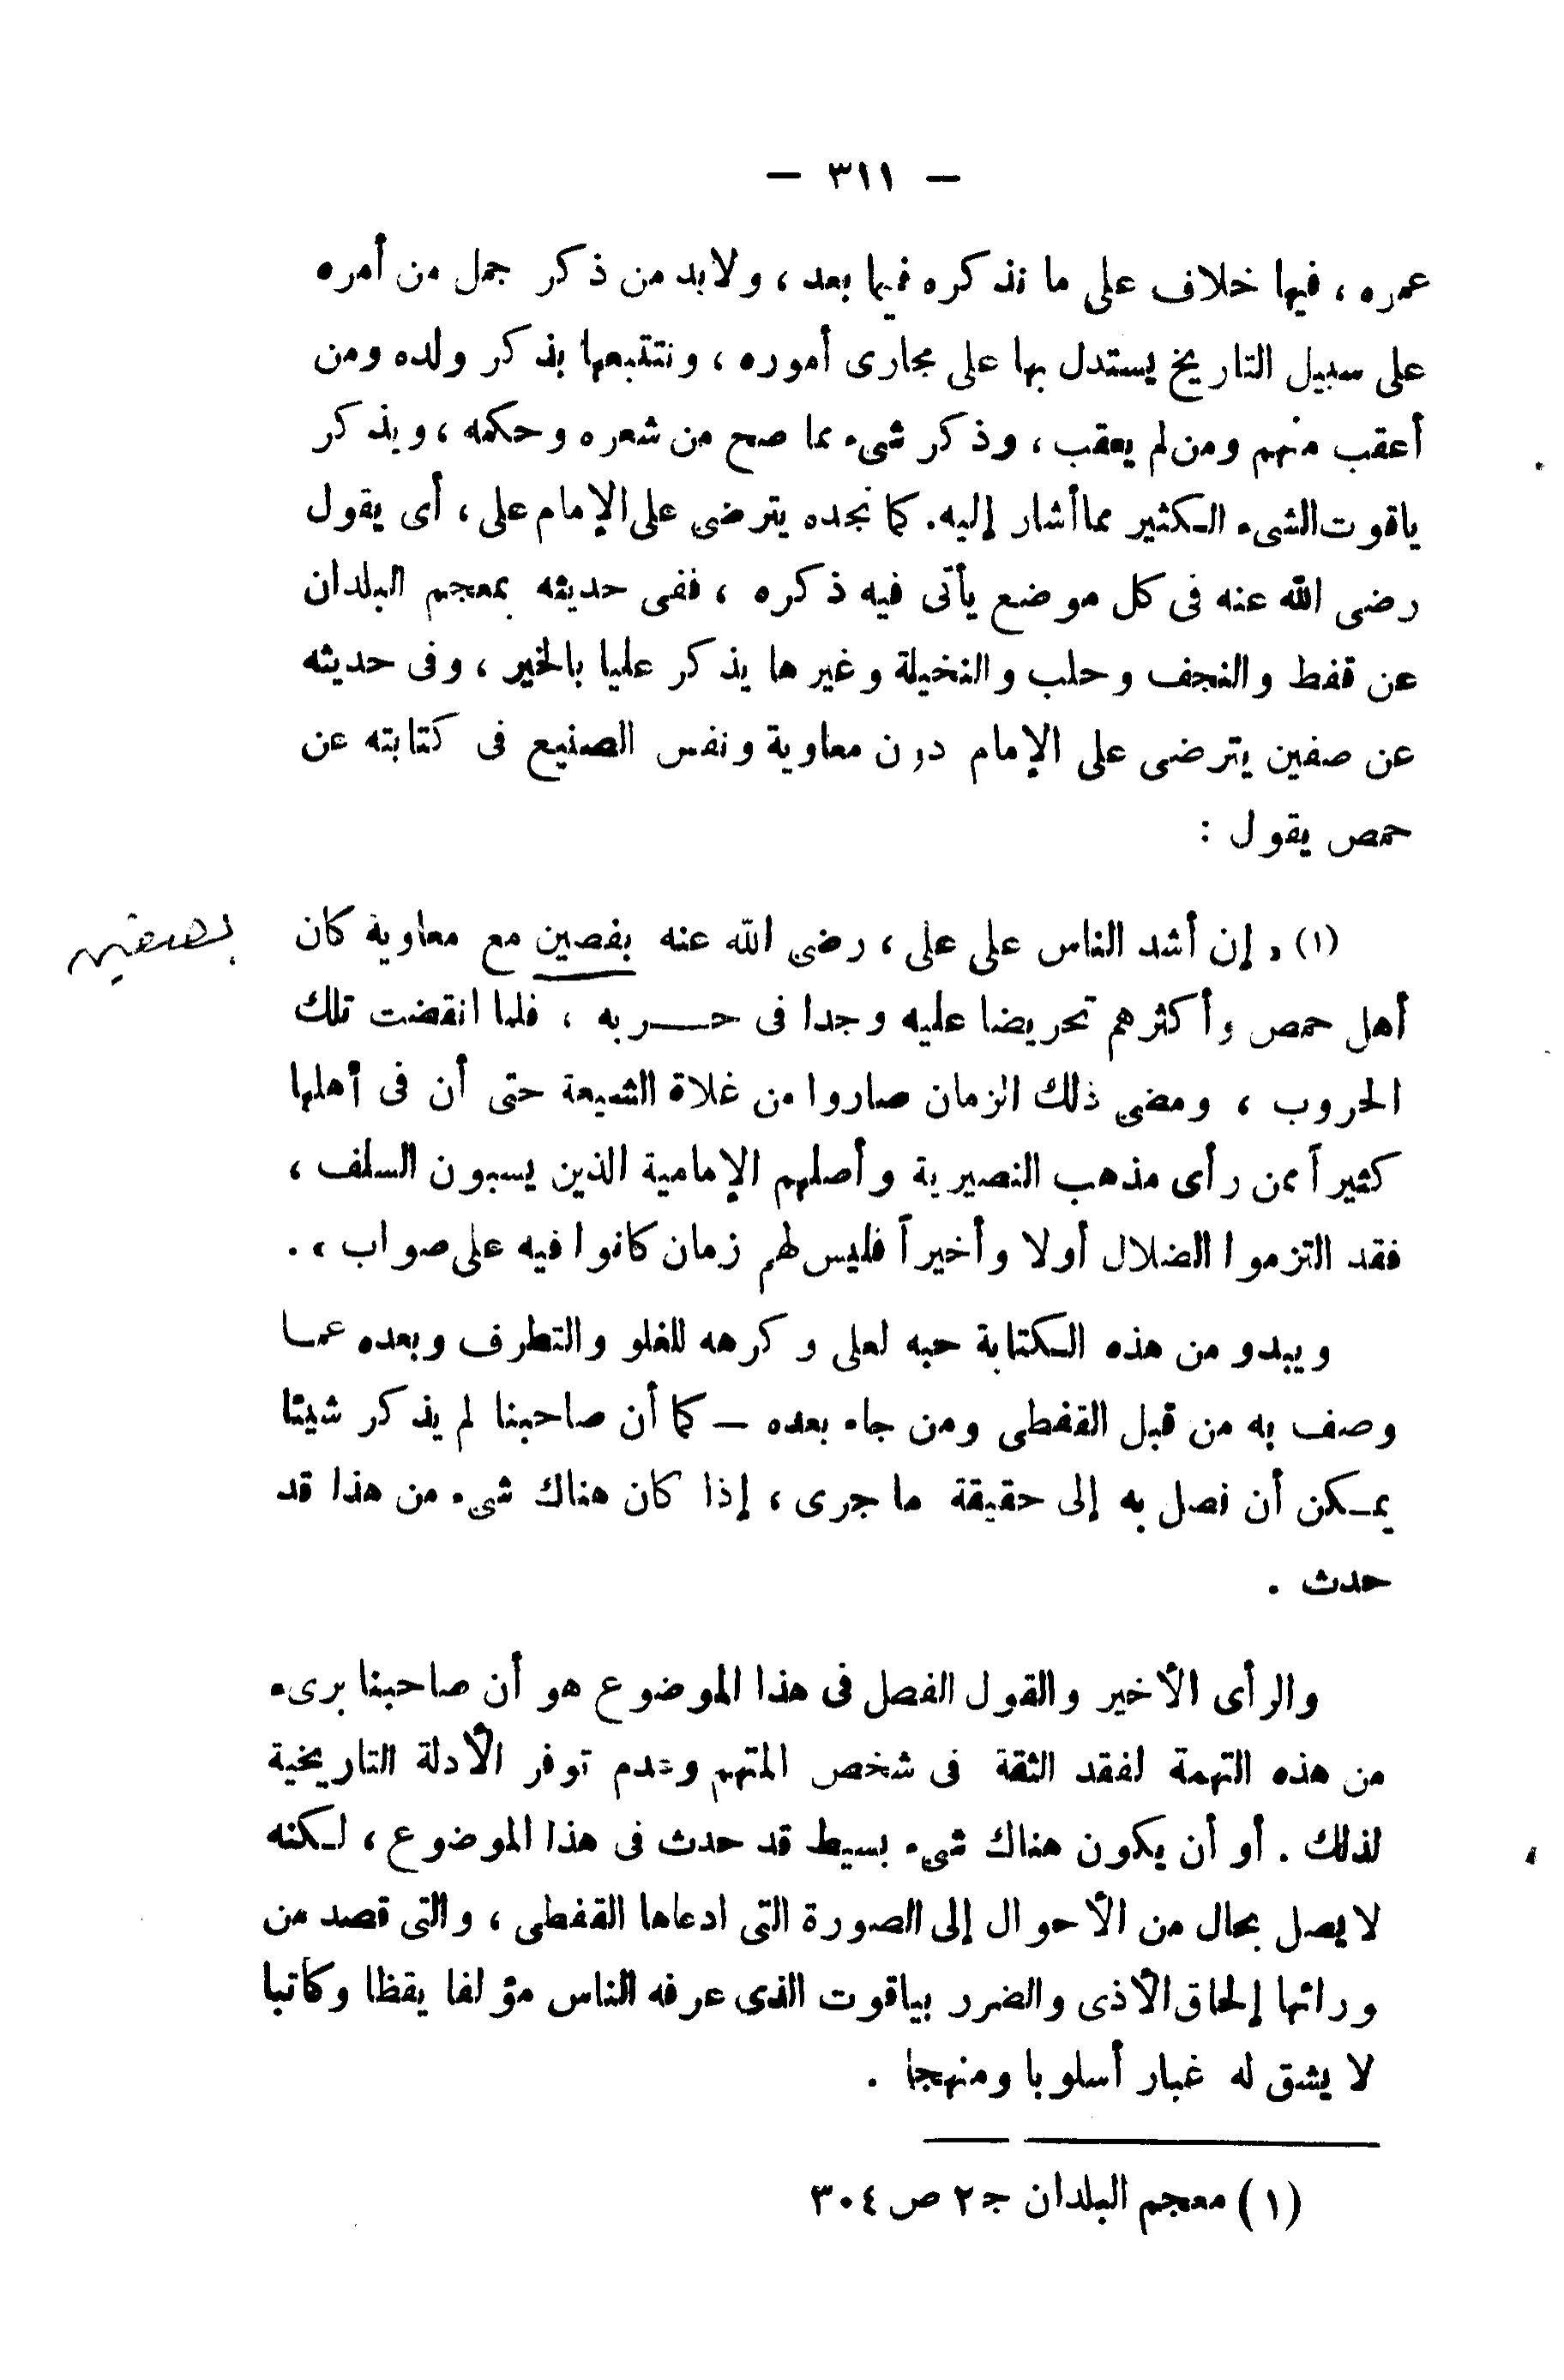 — ٣١١ —
عمره ، فيها خلاف على ما نذكره فيما بعد ، ولابد من ذكر جمل من أمره
على سبيل التاريخ يستدل بها على مجارى أموره ، ونتتبعها بذكر ولده ومن
أعقب منهم ومن لم يعقب ، وذكر شىء مما صح من شعره وحكمه ، ويذكر
ياقوت الشىء الكثير مما أشار إليه. كما نجده يترضى على الإمام على ، أى يقول
رضى الله عنه فى كل موضع يأتى فيه ذكره ، ففى حديثه بمعجم البلدان
عن قفط والنجف وحلب والنخيلة وغيرها يذكر عليا بالخير ، وفى حديثه
عن صفين يترضى على الإمام دون معاوية ونفس الصنيع فى كتابته عن
حمص يقول :
(١) « إن أشد الناس على على ، رضى الله عنه بفصين مع معاوية كان
بصفين
أهل حمص وأكثرهم تحريضا عليه وجدا فى حـــربه ، فلما انقضت تلك
الحروب ، ومضى ذلك الزمان صاروا من غلاة الشيعة حتى أن فى أهلها
كثيراً ممن رأى مذهب النصيرية وأصلهم الإمامية الذين يسبون السلف ،
فقد التزموا الضلال أولا وأخيراً فليس لهم زمان كانوا فيه على صواب » .
ويبدو من هذه الكتابة حبه لعلى وكرهه للغلو والتطرف وبعده عمـا
وصف به من قبل القفطى ومن جاء بعده — كما أن صاحبنا لم يذكر شيئا
يمـكن أن نصل به إلى حقيقة ما جرى ، إذا كان هناك شىء من هذا قد
حدث .
والرأى الأخير والقول الفصل فى هذا الموضوع هو أن صاحبنا برىء
من هذه التهمة لفقد الثقة فى شخص المتهم وعدم توفر الأدلة التاريخية
لذلك . أو أن يكون هناك شىء بسيط قد حدث فى هذا الموضوع ، لـكنه
لا يصل بحال من الأحوال إلى الصورة التى ادعاها القفطى ، والتى قصد من
ورائها إلحاق الأذى والضرر بياقوت الذى عرفه الناس مؤلفا يقظا وكاتبا
لا يشق له غبار أسلوبا ومنهجا .
(١) معجم البلدان ج ٢ ص ٣٠٤